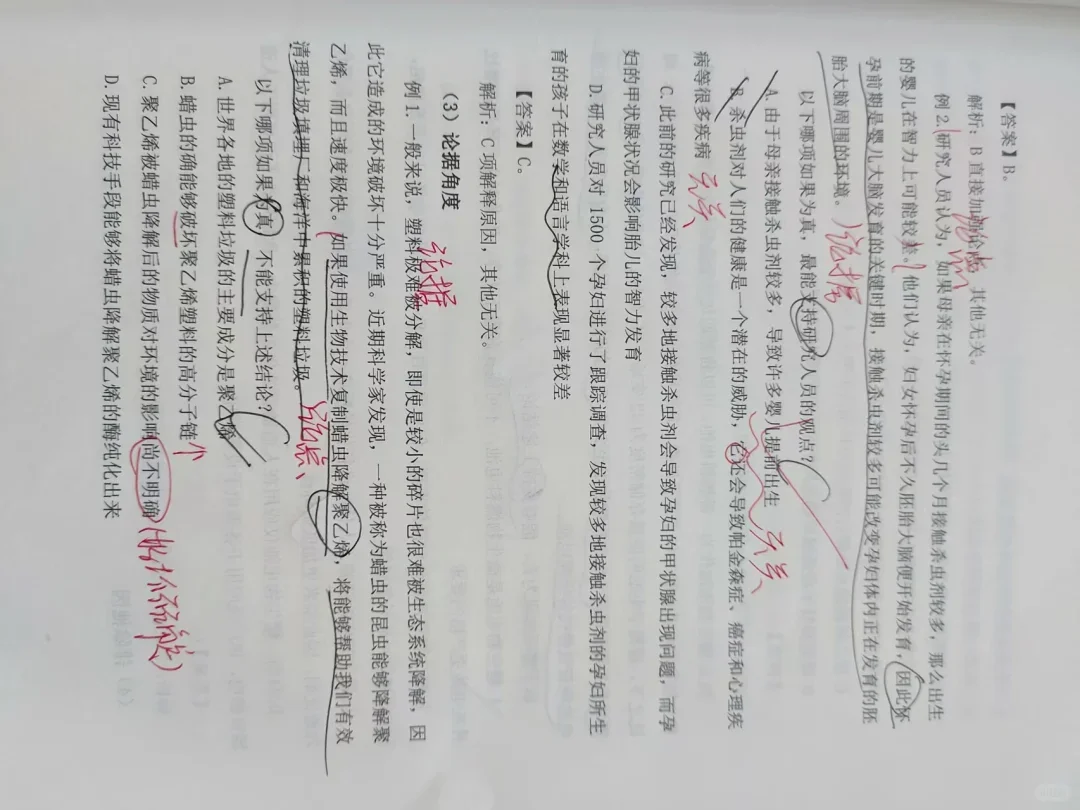 【答案】B。
解析：B直接加强论点，其他无关。
例2.研究人员认为，如果母亲在怀孕期间的头几个月接触杀虫剂较多，那么出生
的婴儿在智力上可能较差。他们认为，妇女怀孕后不久胚胎大脑便开始发育，因此怀
孕前期是婴儿大脑发育的关键时期，接触杀虫剂较多可能改变孕妇体内正在发育的胚
胎大脑周围的环境。
论据
以下哪项如果为真，最能支持研究人员的观点？
A.由于母亲接触杀虫剂较多，导致许多婴儿提前出生
无关
B.杀虫剂对人们的健康是一个潜在的威胁，它还会导致帕金森症、癌症和心理疾
病等很多疾病
无关
C.此前的研究已经发现，较多地接触杀虫剂会导致孕妇的甲状腺出现问题，而孕
妇的甲状腺状况会影响胎儿的智力发育
D.研究人员对1500个孕妇进行了跟踪调查，发现较多地接触杀虫剂的孕妇所生
育的孩子在数学和语言学科上表现显著较差
【答案】C。
解析：C项解释原因，其他无关。
（3）论据角度
论据
例1.一般来说，塑料极难被分解，即使是较小的碎片也很难被生态系统降解，因
此它造成的环境破坏十分严重。近期科学家发现，一种被称为蜡虫的昆虫能够降解聚
乙烯，而且速度极快。如果使用生物技术复制蜡虫降解聚乙烯，将能够帮助我们有效
清理垃圾填埋厂和海洋中累积的塑料垃圾。
论点
以下哪项如果为真，不能支持上述结论？
A.世界各地的塑料垃圾的主要成分是聚乙烯
B.蜡虫的确能够破坏聚乙烯塑料的高分子链
C.聚乙烯被蜡虫降解后的物质对环境的影响尚不明确
D.现有科技手段能够将蜡虫降解聚乙烯的酶纯化出来